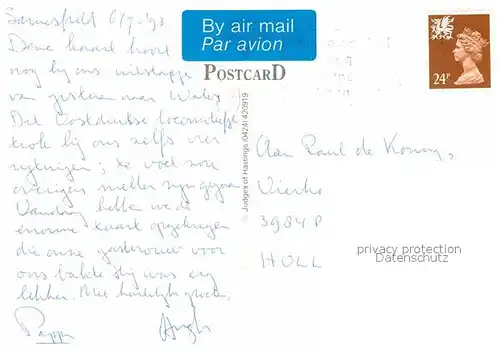 Sarnesfield 6/7-'93
Deze kaart hoort
nog bij ons uitstapje
van gisteren naar Wales
Dit oostduitse locomotiefje
trok bij ons zelfs vier
rijtuigen; te voet zou
overigens sneller zijn gegaan
Vandaag hebben we de
enorme taart opgekregen
die onze gastvrouw voor
ons bakte. Hij was erg
lekker. Met hartelijk groeten,
By air mail
Par avion
POSTCARD
Judges of Hastings (0424) 420919
24P
Aan Paul de Koning,
3984 P
privacy protection
Datenschutz